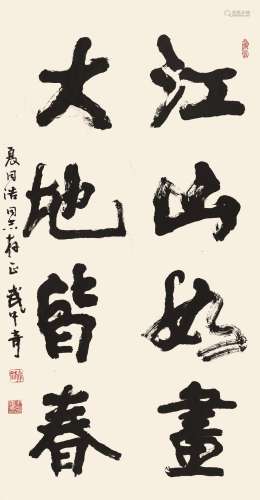 江山如畫
大地皆春
夏同浩同志存正 武中奇